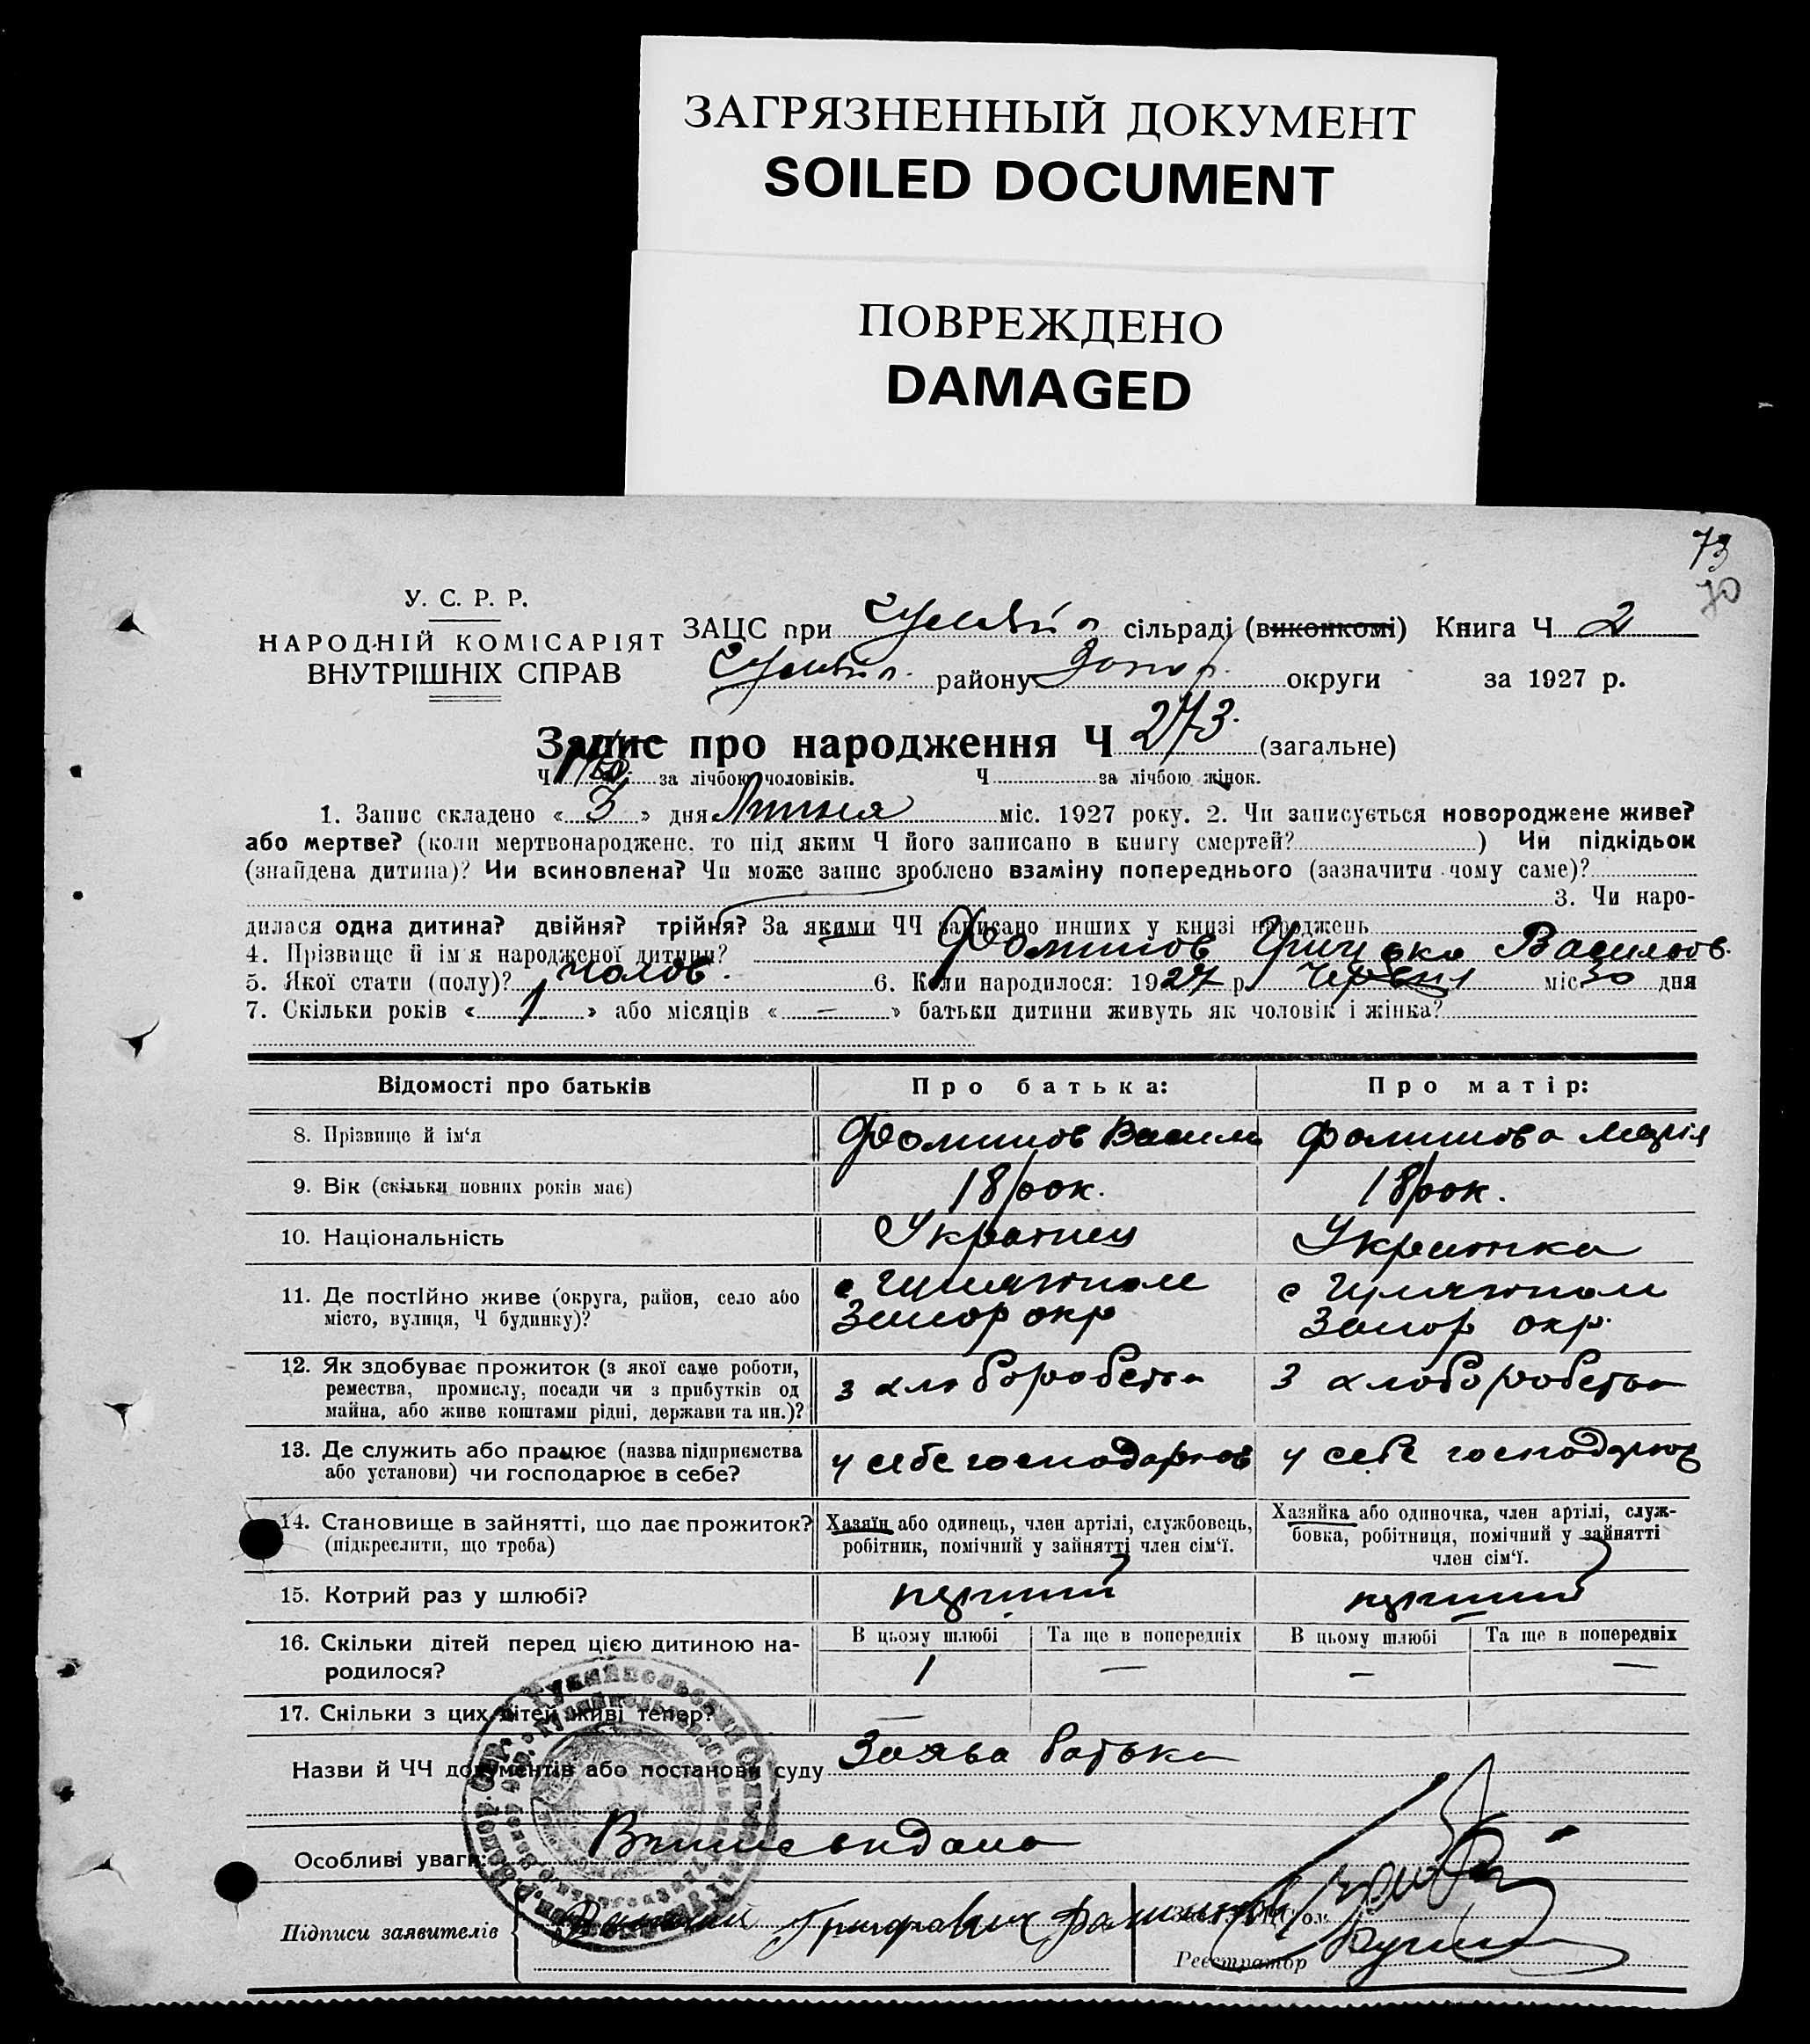 ЗАГРЯЗНЕННЫЙ ДОКУМЕНТ
SOILED DOCUMENT
ПОВРЕЖДЕНО
DAMAGED
73
70
У. С. Р. Р.
НАРОДНІЙ КОМІСАРІЯТ
ВНУТРІШНІХ СПРАВ
ЗАЦС при сільраді (виконкомі) Книга Ч 2
району Запор. округи за 1927 р.
Запис про народження Ч 273. (загальне)
Ч за лічбою чоловіків. Ч за лічбою жінок.
1. Запис складено « 3 » дня Липня міс. 1927 року. 2. Чи записується новороджене живе?
або мертве? (коли мертвонароджене, то під яким Ч його записано в книгу смертей? ) Чи підкідьок
(знайдена дитина)? Чи всиновлена? Чи може запис зроблено взаміну попереднього (зазначити чому саме)?
3. Чи наро-
дилася одна дитина? двійня? трійня? За якими ЧЧ записано инших у книзі народжень
4. Прізвище й ім'я народженої дитини? Фоминов Грицько Васильов.
5. Якої стати (полу)? чолов. 6. Коли народилося: 1927 р. Червня міс. 30 дня
7. Скільки років « 1 » або місяців « — » батьки дитини живуть як чоловік і жінка?
Відомості про батьків Про батька: Про матір:
8. Прізвище й ім'я Фоминов Василь Фоминова Марія
9. Вік (скільки повних років має) 18 рок. 18 рок.
10. Національність Українец Українка
11. Де постійно живе (округа, район, село або с Гуляйполе с Гуляйполе
місто, вулиця, Ч будинку)? Запор окр Запор окр.
12. Як здобуває прожиток (з якої саме роботи,
ремества, промислу, посади чи з прибутків од з хлоборобства з хлоборобства
майна, або живе коштами рідні, держави та ин.)?
13. Де служить або працює (назва підприємства у себе господарює у себе господарює
або установи) чи господарює в себе?
14. Становище в зайнятті, що дає прожиток? Хазяїн або одинець, член артілі, службовець, Хазяйка або одиночка, член артілі, служ-
(підкреслити, що треба) робітник, помічний у зайнятті член сім'ї. бовка, робітниця, помічний у зайнятті
член сім'ї.
15. Котрий раз у шлюбі? перший перший
16. Скільки дітей перед цією дитиною на- В цьому шлюбі Та ще в попередніх В цьому шлюбі Та ще в попередніх
родилося? 1 — — —
17. Скільки з цих дітей живі тепер? —
Назви й ЧЧ документів або постанови суду Заява батька
Особливі уваги: Випис видано
Підписи заявителів
Реєстратор